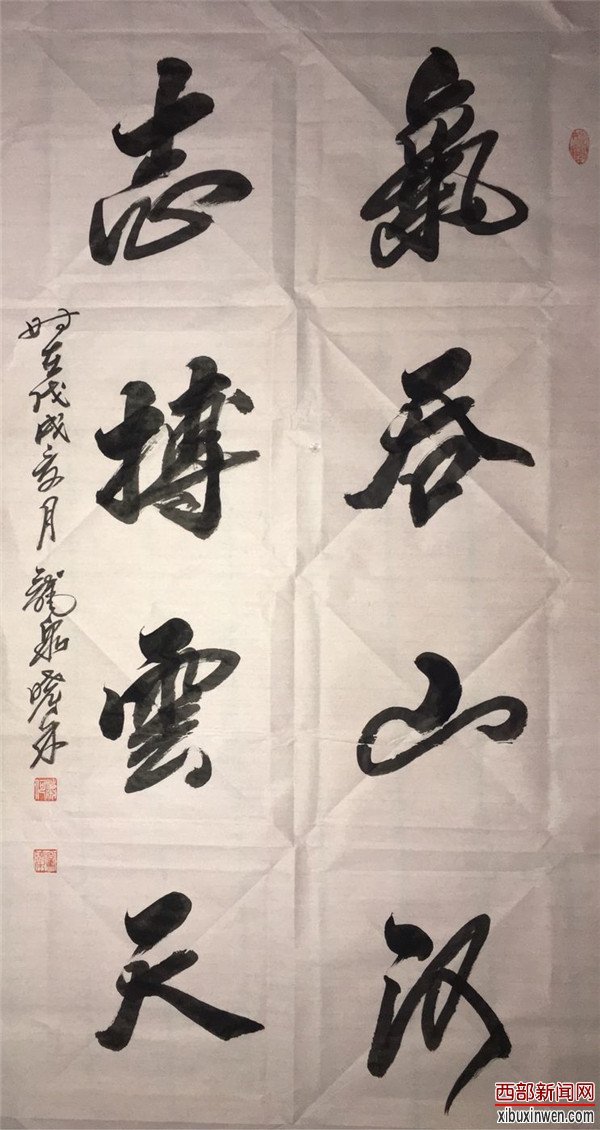 氣吞山河
志搏雲天
時在戊戌亥月 龍泉曉東
西部新闻网
xibuxinwen.com